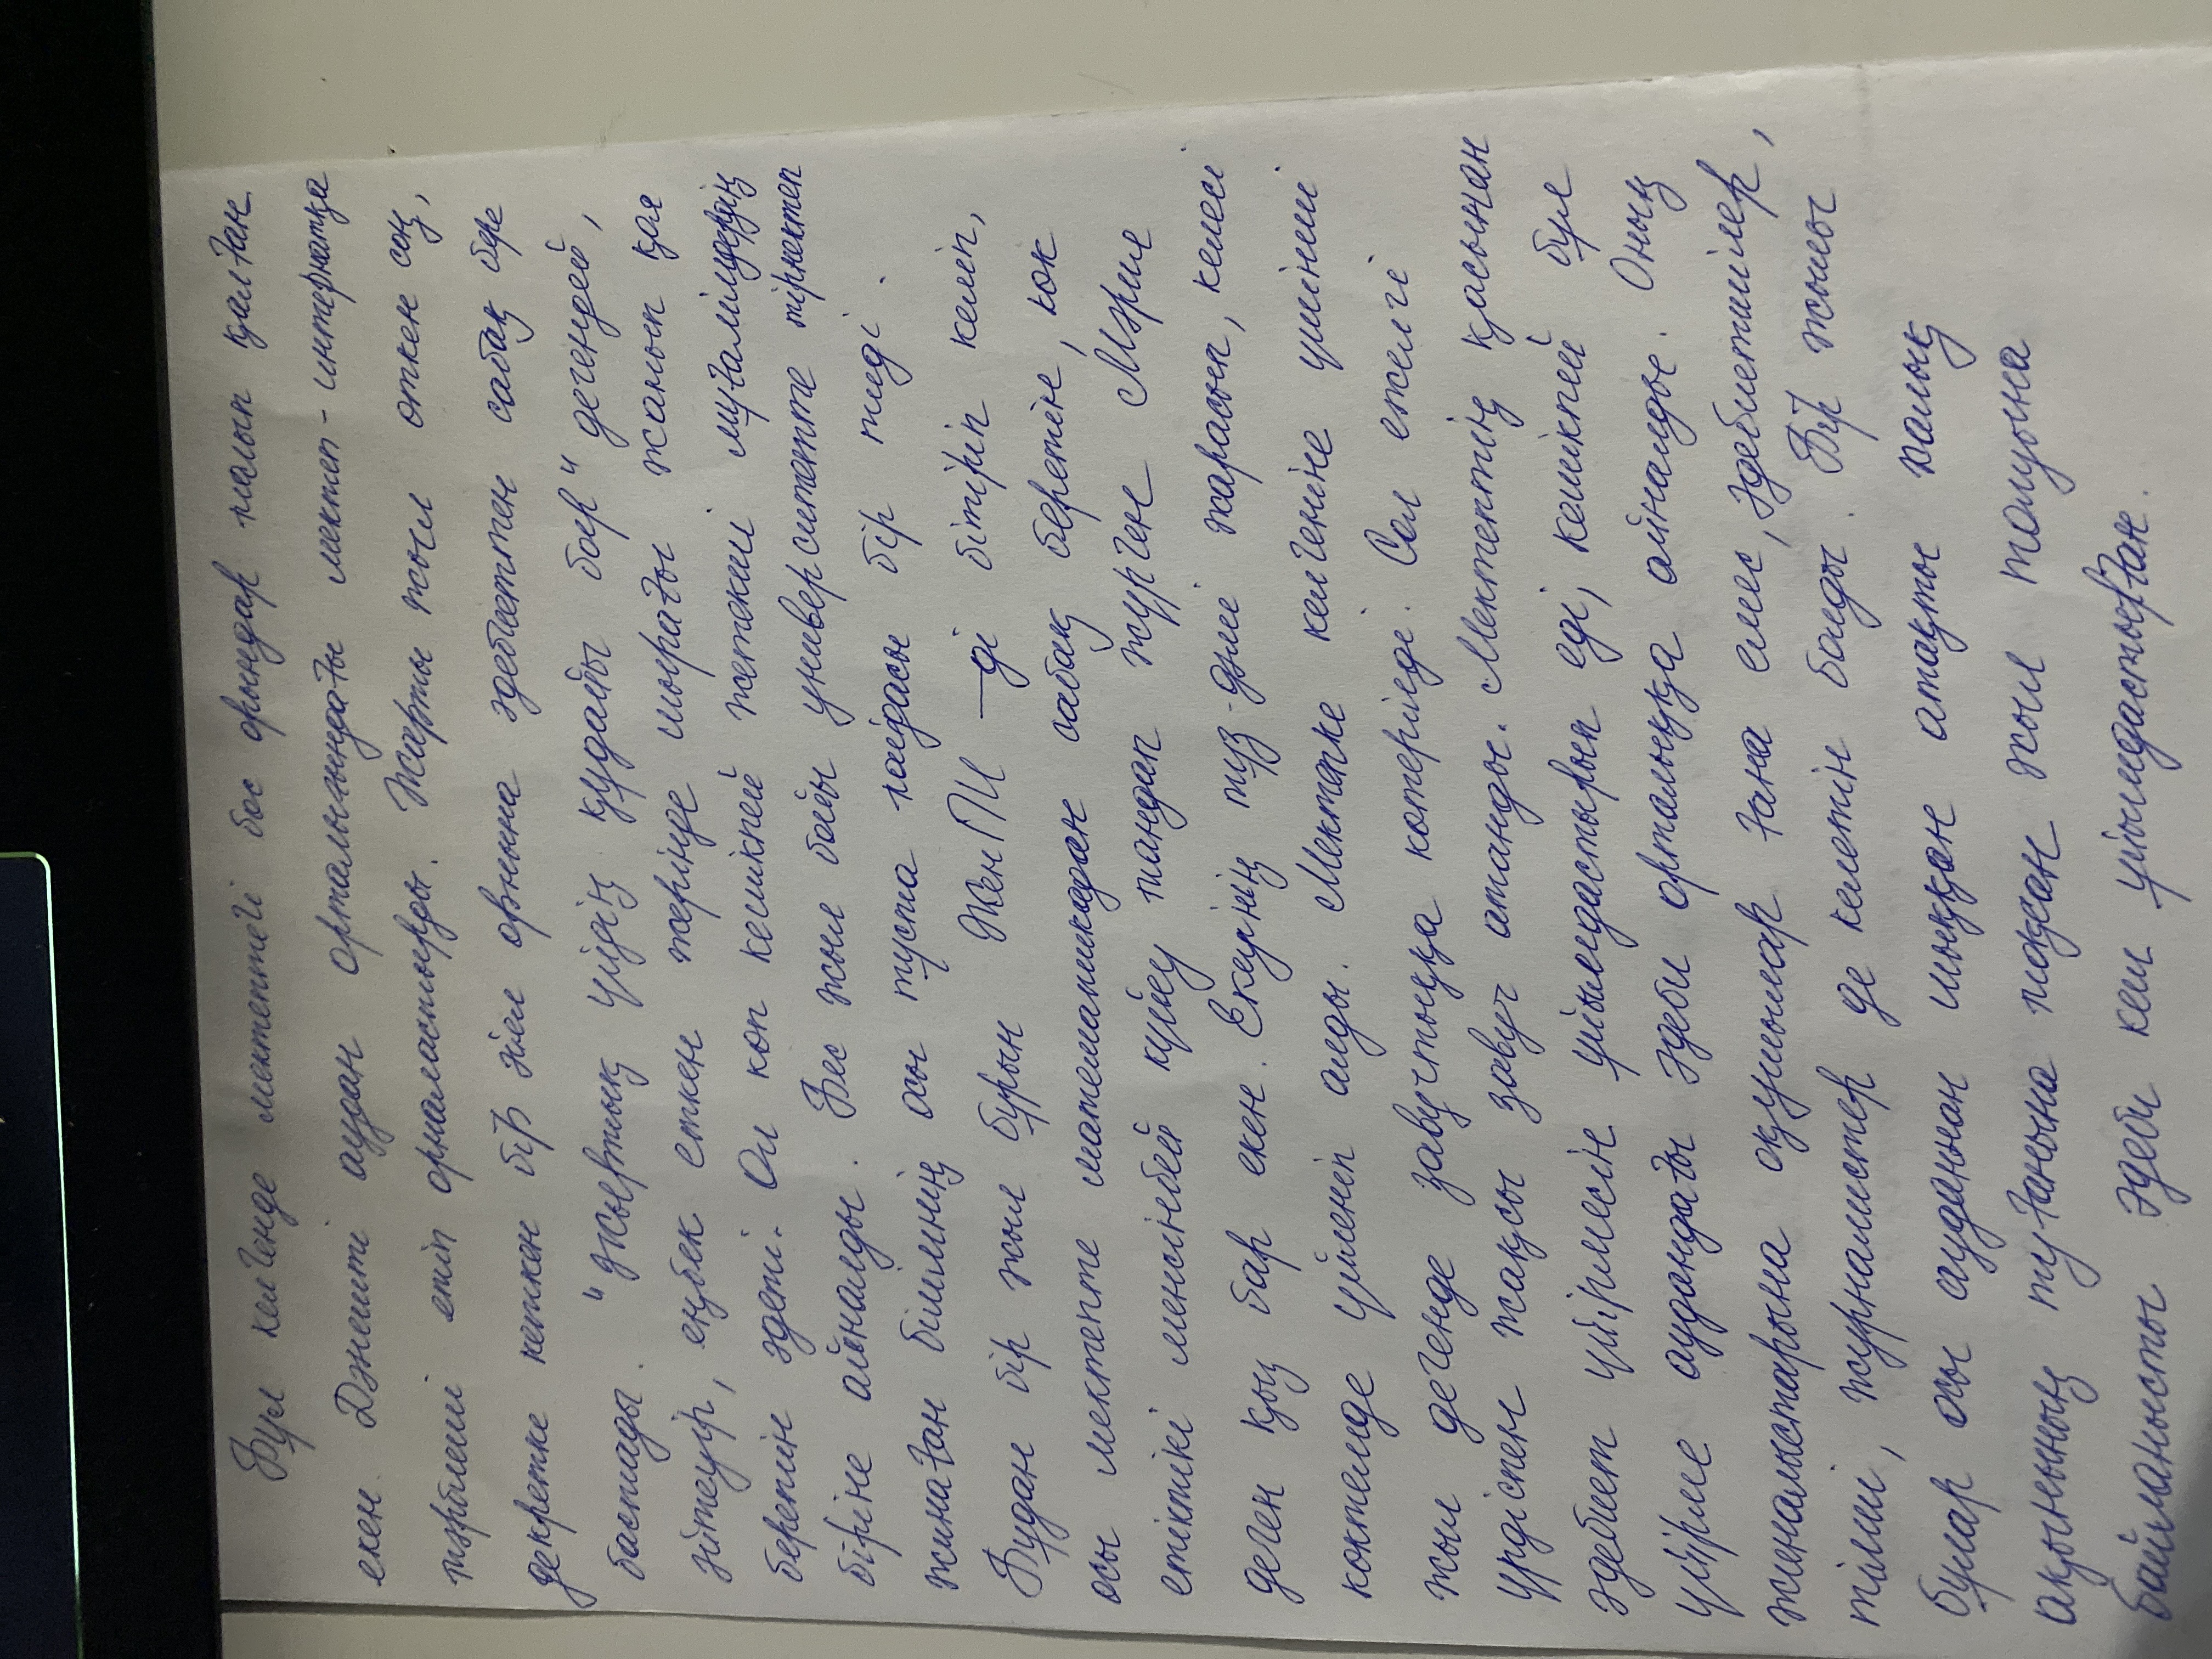 Бұл келгенде мектептегі бос орындар толып қалған
екен. Дәнешті аудан орталығындағы мектеп-интернатқа
тәрбиеші етіп орналастырды. Жарты жыл өткен соң,
декретке кеткен бір әйел орнына әдебиеттен сабақ бере
бастады. "Жыртық үйдің құдайы бар" дегендей,
әйтеуір, еңбек еткен жерінде шырағы жанып қоя
беретін әдеті. Ол көп кешікпей жетекші мұғалімдердің
біріне айналды. Бес жыл бойы университетте тірнектеп
жинаған білімнің осы тұста пайдасы бір тиді.
Бұдан бір жыл бұрын ЖенПИ-ді бітіріп келіп,
осы мектепте математикадан сабақ беретін, көк
етіктікі менсінбей күйеу таңдап жүрген Мәрия
деген қыз бар екен. Екеуінің тұз-дәмі жарасып, келесі
көктемде үйленіп алды. Мектепке келгеніне үшінші
жыл дегенде завучтыққа көтерілді. Сол ежелгі
үрдіспен жақсы завуч атанды. Мектептің қасынан
әдебиет үйірмесін ұйымдастырып еді, кешікпей бұл
үйірме аудандағы әдеби орталыққа айналды. Оның
жиналыстарына оқушылар ғана емес, әдебиетшілер,
тілші, журналистер де келетін болды. Бір жылы
бұлар осы ауданнан шыққан атақты халық
ақынының туғанына тоқсан жыл толуына
байланысты әдеби кеш ұйымдастырған.